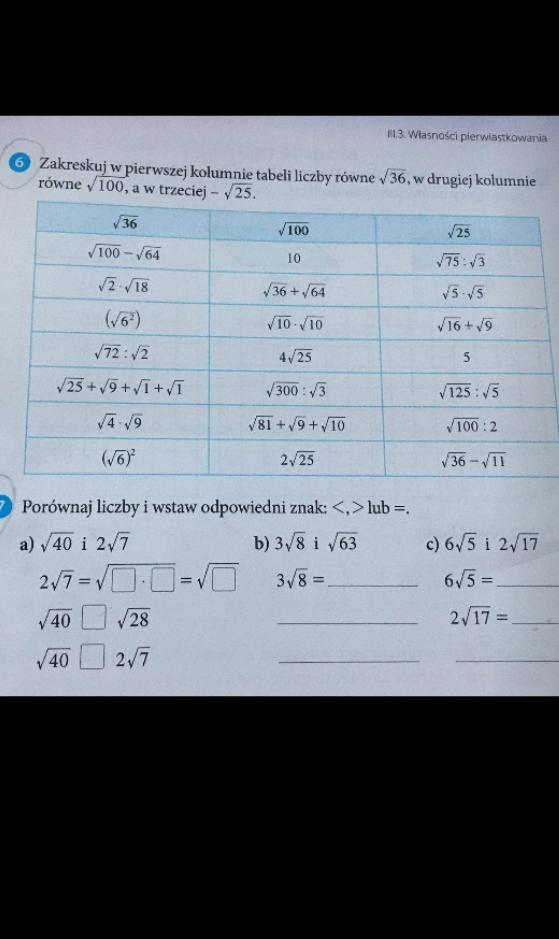 III.3. Własności pierwiastkowania
6 Zakreskuj w pierwszej kolumnie tabeli liczby równe √36, w drugiej kolumnie
równe √100, a w trzeciej – √25.
√36 √100 √25
√100 − √64 10 √75 : √3
√2 · √18 √36 + √64 √5 · √5
(√6²) √10 · √10 √16 + √9
√72 : √2 4√25 5
√25 + √9 + √1 + √1 √300 : √3 √125 : √5
√4 · √9 √81 + √9 + √10 √100 : 2
(√6)² 2√25 √36 − √11
7 Porównaj liczby i wstaw odpowiedni znak: <, > lub =.
a) √40 i 2√7 b) 3√8 i √63 c) 6√5 i 2√17
2√7 = √□ · □ = √□ 3√8 = ________ 6√5 = ________
√40 □ √28 ________ 2√17 = ________
√40 □ 2√7 ________ ________